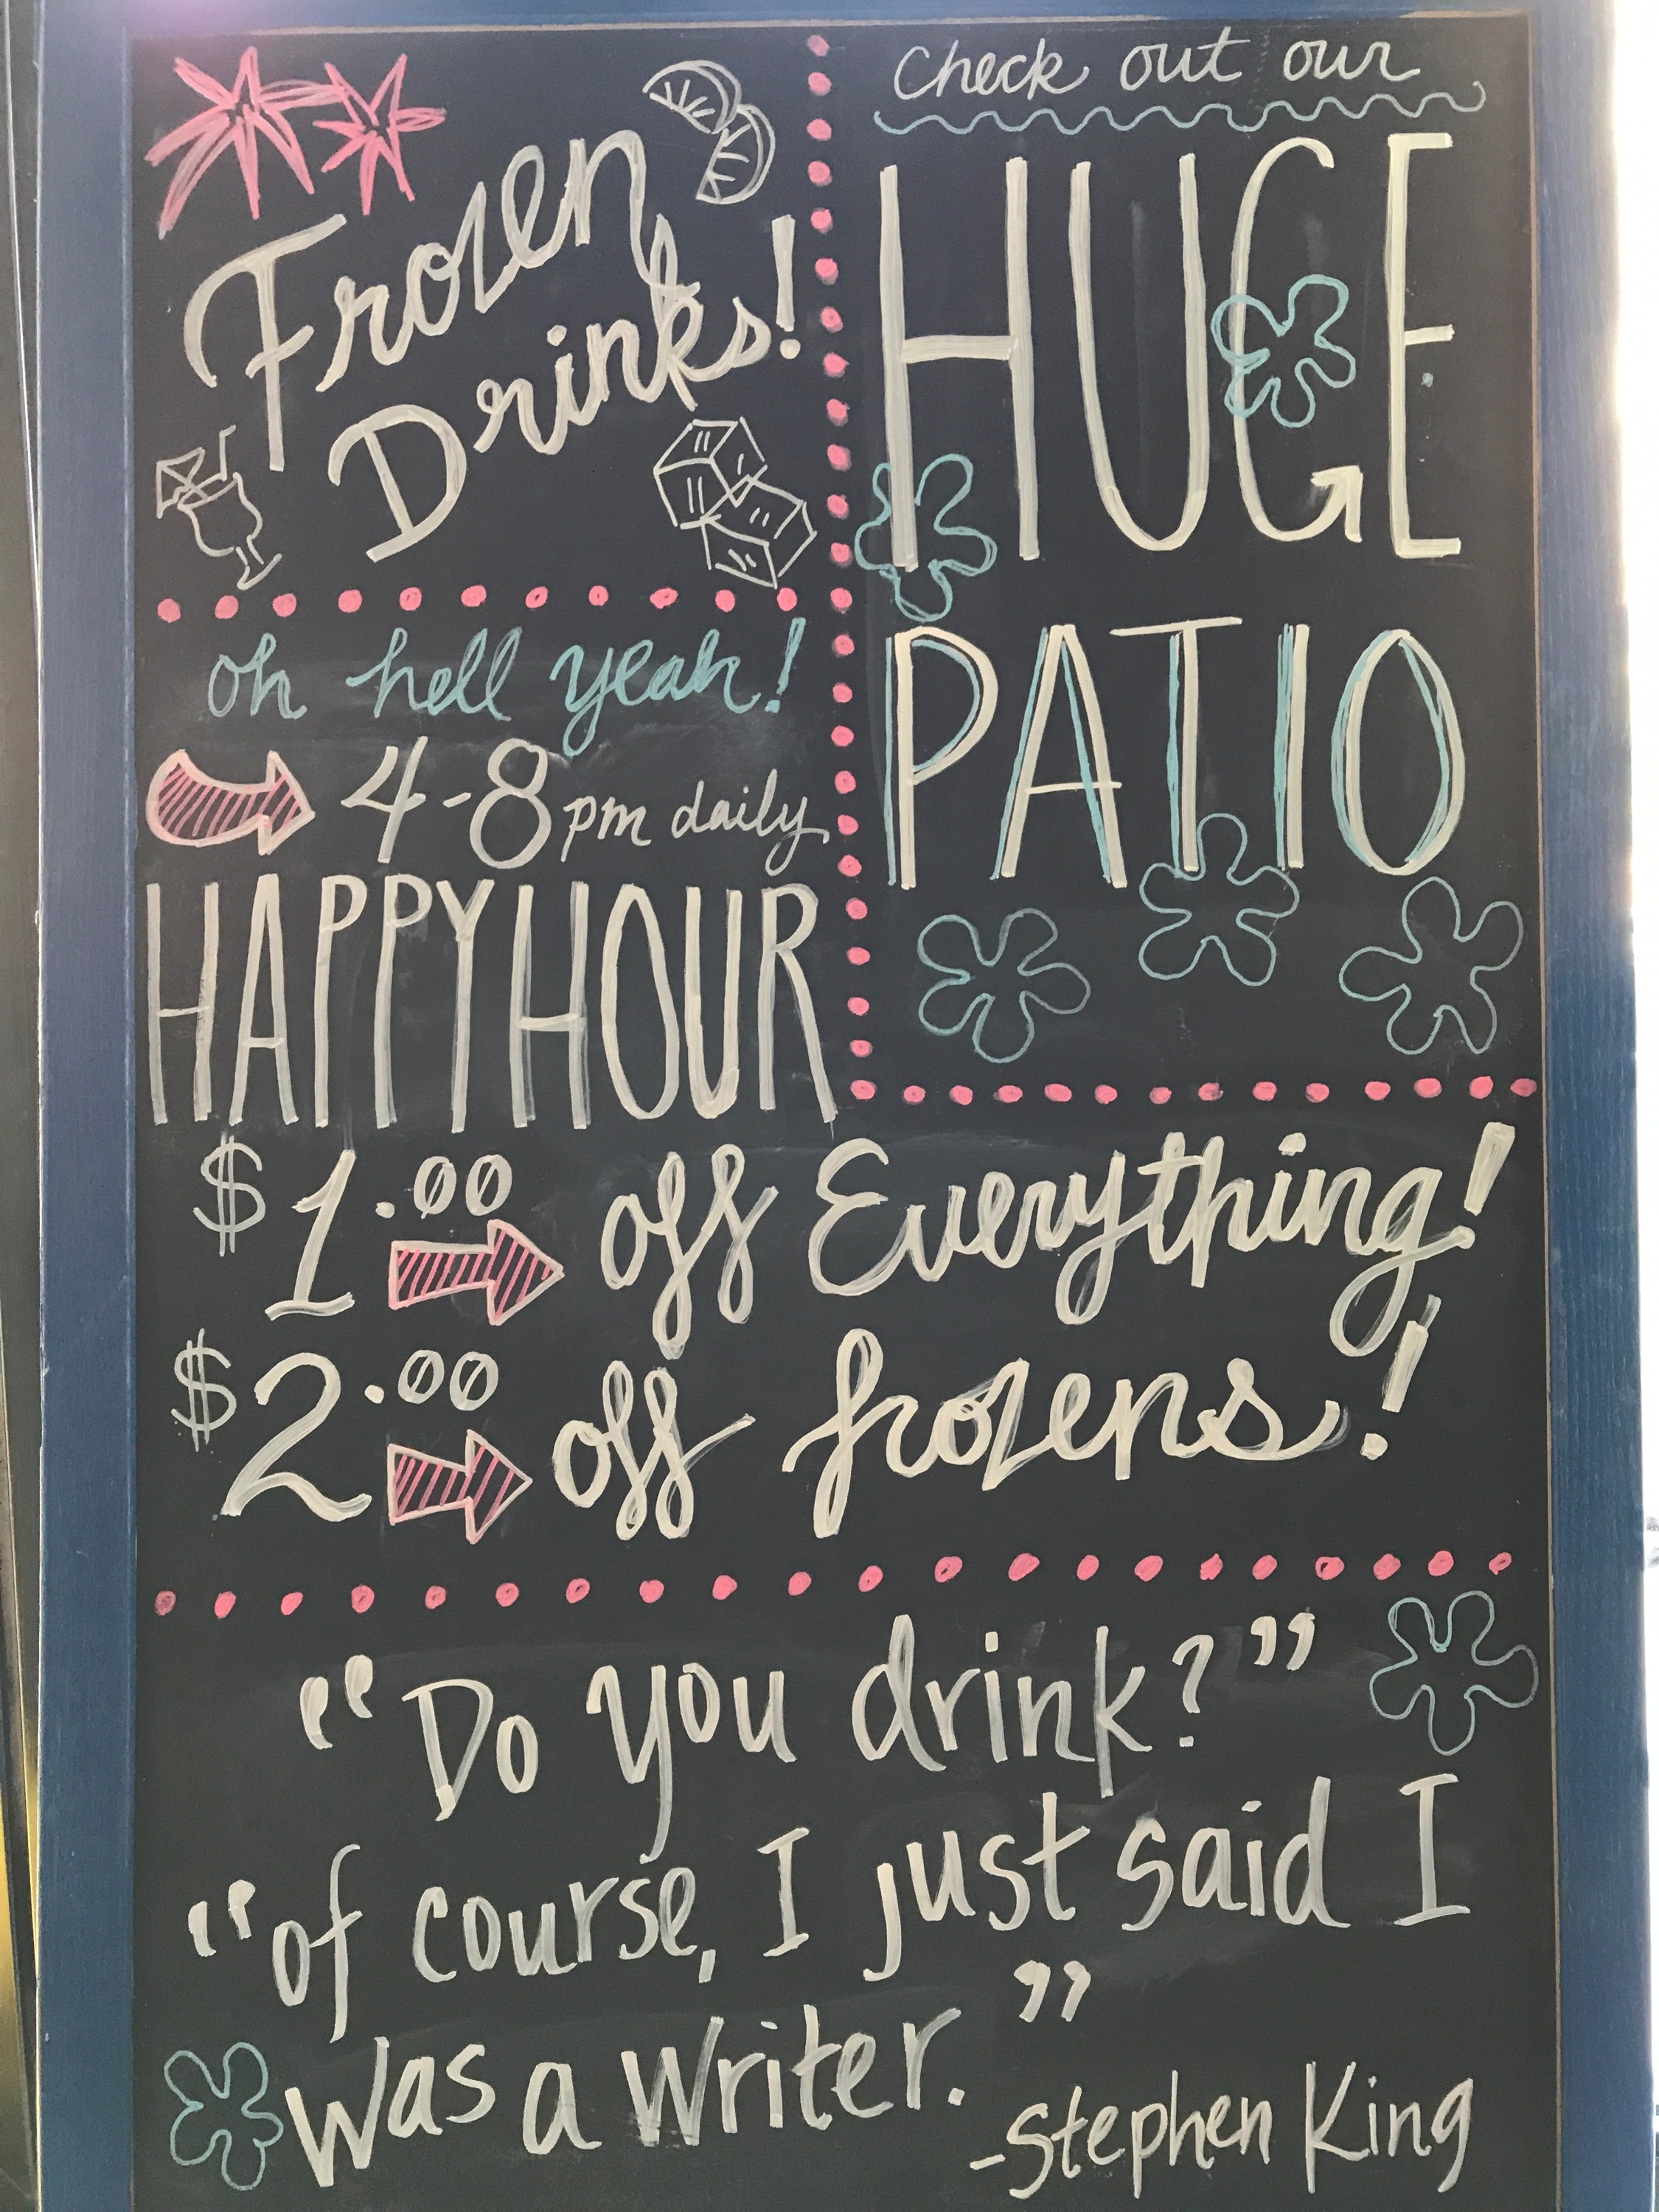 Frozen
Drinks!
oh hell yeah!
4-8 pm daily
HAPPY HOUR
check out our
HUGE
PATIO
$1.00 off Everything!
$2.00 off frozens!
"Do you drink?"
"of course, I just said I
was a writer."
-Stephen King